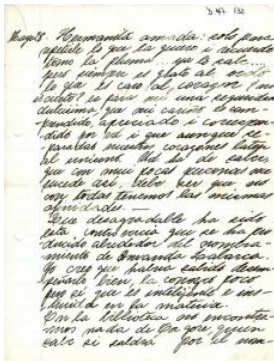 D.47. 132
Mayo 28. Hermanita amada: solo para
repetirle lo que la quiero i recuerdo
tomo la pluma... ya lo sabe...
pero siempre es grato al oído
lo que es caro al corazón ¿no
es cierto? es para mí una seguridad
dulcísima, que mi cariño es com-
prendido, apreciado i correspon-
dido por Ud i que aunque se-
paradas nuestros corazones laten
al unísono. Ud ha de saber
que con muy pocas personas me
sucede así. Debe ser que no
con todas tenemos las mismas
afinidades.—
Qué desagradable ha sido
esta controversia que se ha pro-
ducido alrededor del nombra-
miento de Amanda Labarca.
Yo creo que habría sabido desem-
peñarlo bien, la conozco poco
pero sé que es inteligente e ins-
truida en la materia.
En la biblioteca no encontra-
mos nada de Tagore, quien
sabe si saldrá por el mon-